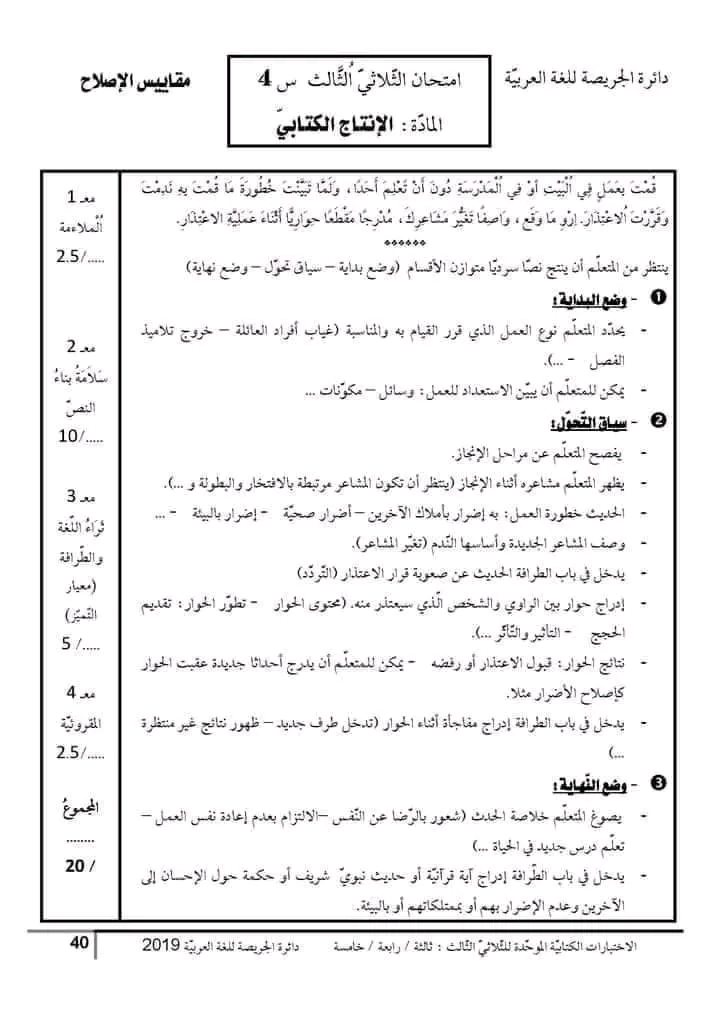 دائرة الجريصة للغة العربيّة
امتحان الثّلاثيّ الثَّالث س 4
المادّة : الإنتاج الكتابيّ
مقاييس الإصلاح
قُمْتَ بِعَمَلٍ فِي اُلْبَيْتِ أَوْ فِي اُلْمَدْرَسَةِ دُونَ أَنْ تَعْلِمَ أَحَدًا، وَلَمَّا تَبَيَّنْتَ خُطُورَةَ مَا قُمْتَ بِهِ نَدِمْتَ
وَقَرَّرْتَ اُلاعْتِذَارَ. اِرْوِ مَا وَقَعَ، وَاصِفًا تَغَيُّرَ مَشَاعِرِكَ، مُدْرِجًا مَقْطَعًا حِوَارِيًّا أَثْنَاءَ عَمَلِيَّةِ الاعْتِذَارِ.
******
ينتظر من المتعلّم أن ينتج نصّا سرديّا متوازن الأقسام (وضع بداية – سياق تحوّل – وضع نهاية)
❶ - وضع البداية :
- يحدّد المتعلّم نوع العمل الذي قرر القيام به والمناسبة (غياب أفراد العائلة – خروج تلاميذ
الفصل - ...).
- يمكن للمتعلّم أن يبيّن الاستعداد للعمل: وسائل – مكوّنات ...
❷ - سياق التّحوّل :
- يفصح المتعلّم عن مراحل الإنجاز.
- يظهر المتعلّم مشاعره أثناء الإنجاز (ينتظر أن تكون المشاعر مرتبطة بالافتخار والبطولة و ...).
- الحديث خطورة العمل: به إضرار بأملاك الآخرين – أضرار صحيّة - إضرار بالبيئة - ...
- وصف المشاعر الجديدة وأساسها النّدم (تغيّر المشاعر).
- يدخل في باب الطرافة الحديث عن صعوبة قرار الاعتذار (التّردّد)
- إدراج حوار بين الراوي والشخص الّذي سيعتذر منه. (محتوى الحوار - تطوّر الحوار: تقديم
الحجج - التأثير والتّأثّر ...).
- نتائج الحوار: قبول الاعتذار أو رفضه - يمكن للمتعلّم أن يدرج أحداثا جديدة عقبت الحوار
كإصلاح الأضرار مثلا.
- يدخل في باب الطرافة إدراج مفاجأة أثناء الحوار (تدخل طرف جديد – ظهور نتائج غير منتظرة
...)
❸ - وضع النّهاية :
- يصوغ المتعلّم خلاصة الحدث (شعور بالرّضا عن النّفس –الالتزام بعدم إعادة نفس العمل –
تعلّم درس جديد في الحياة ...)
- يدخل في باب الطّرافة إدراج آية قرآنيّة أو حديث نبويّ شريف أو حكمة حول الإحسان إلى
الآخرين وعدم الإضرار بهم أو بممتلكاتهم أو بالبيئة.
معـ 1
اُلْملاءمة
...../2.5
معـ 2
سَلَامَةُ بناءُ
النصّ
...../10
معـ 3
ثَرَاءُ اللّغة
والطّرافة
(معيار
التّميّز)
...../ 5
معـ 4
المقروئيّة
...../2.5
المجموعُ
........
/ 20
الاختبارات الكتابيّة الموحّدة للثّلاثيّ الثّالث : ثالثة / رابعة / خامسة دائرة الجريصة للغة العربيّة 2019 40